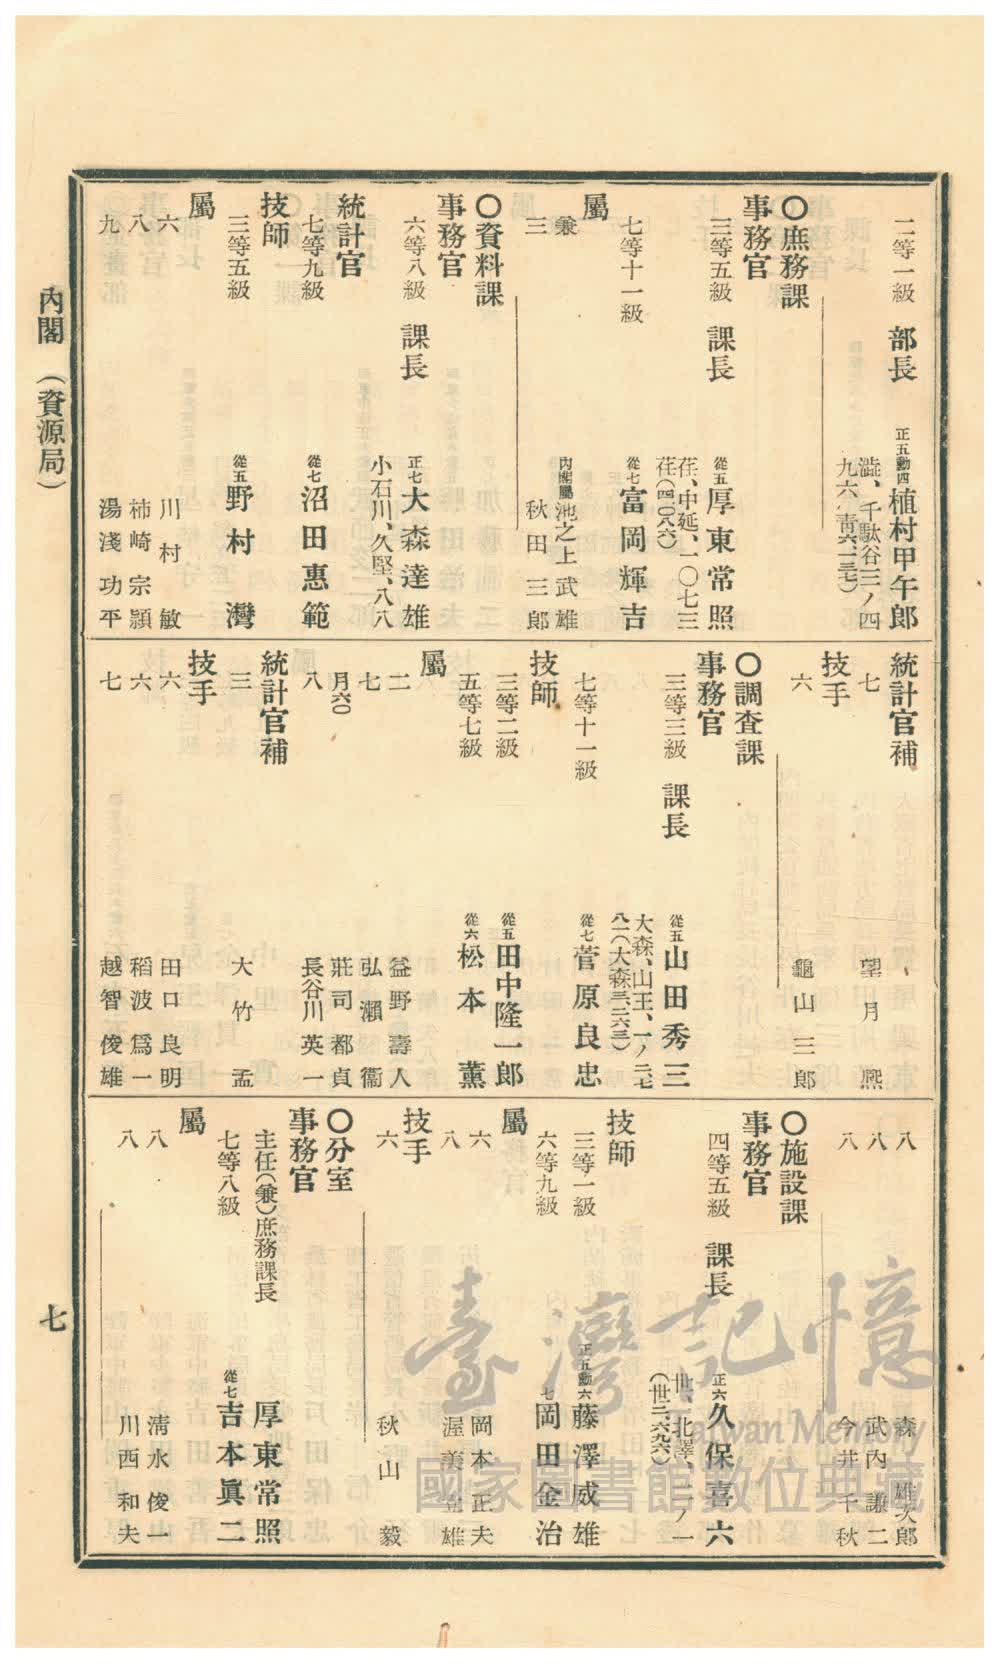 二等一級 部長 正五勳四 植村甲午郎
澁、千駄谷三ノ四
九六、(靑六一三七)
〇庶務課
事務官
三等五級 課長 從五 厚東常照
荏、中延、一〇七三
荏(四〇八六)
七等十一級 從七 富岡輝吉
屬
兼 內閣屬 池之上武雄
三 秋田三郎
〇資料課
事務官
六等八級 課長 正七 大森達雄
小石川、久堅、八八
統計官
七等九級 從七 沼田惠範
技師
三等五級 從五 野村灣
屬
六 川村敏
八 柿崎宗顯
九 湯淺功平
統計官補
七 望月熈
技手
六 龜山三郎
〇調査課
事務官
三等三級 課長 從五 山田秀三
大森、山王、一ノ二七
八一(大森三、二六三)
七等十一級 從七 菅原良忠
技師
三等二級 從五 田中隆一郎
五等七級 從六 松本薰
屬
二 益野壽人
七 弘瀨衞
月六〇 莊司都貞
八 長谷川英一
統計官補
三 大竹孟
技手
六 田口良明
六 稻波爲一
七 越智俊雄
八 森雄次郎
八 武內謙二
八 今井千秋
〇施設課
事務官
四等五級 課長 正六 久保喜六
世、北澤、二ノ一
(世二、六九六)
技師
三等一級 正五勳六 藤澤威雄
六等九級 七 岡田金治
屬
六 岡本正夫
八 渥美雄
技手
六 秋山毅
〇分室
事務官
主任(兼)庶務課長 厚東常照
七等八級 從七 吉本眞二
屬
八 淸水俊一
八 川西和夫
內閣 (資源局)
七
臺灣記憶
Taiwan Memory
國家圖書館數位典藏